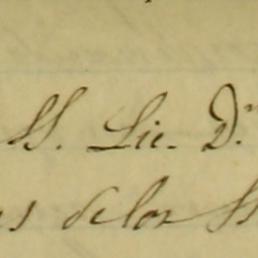 SS. Lic. D.n
s delos SS